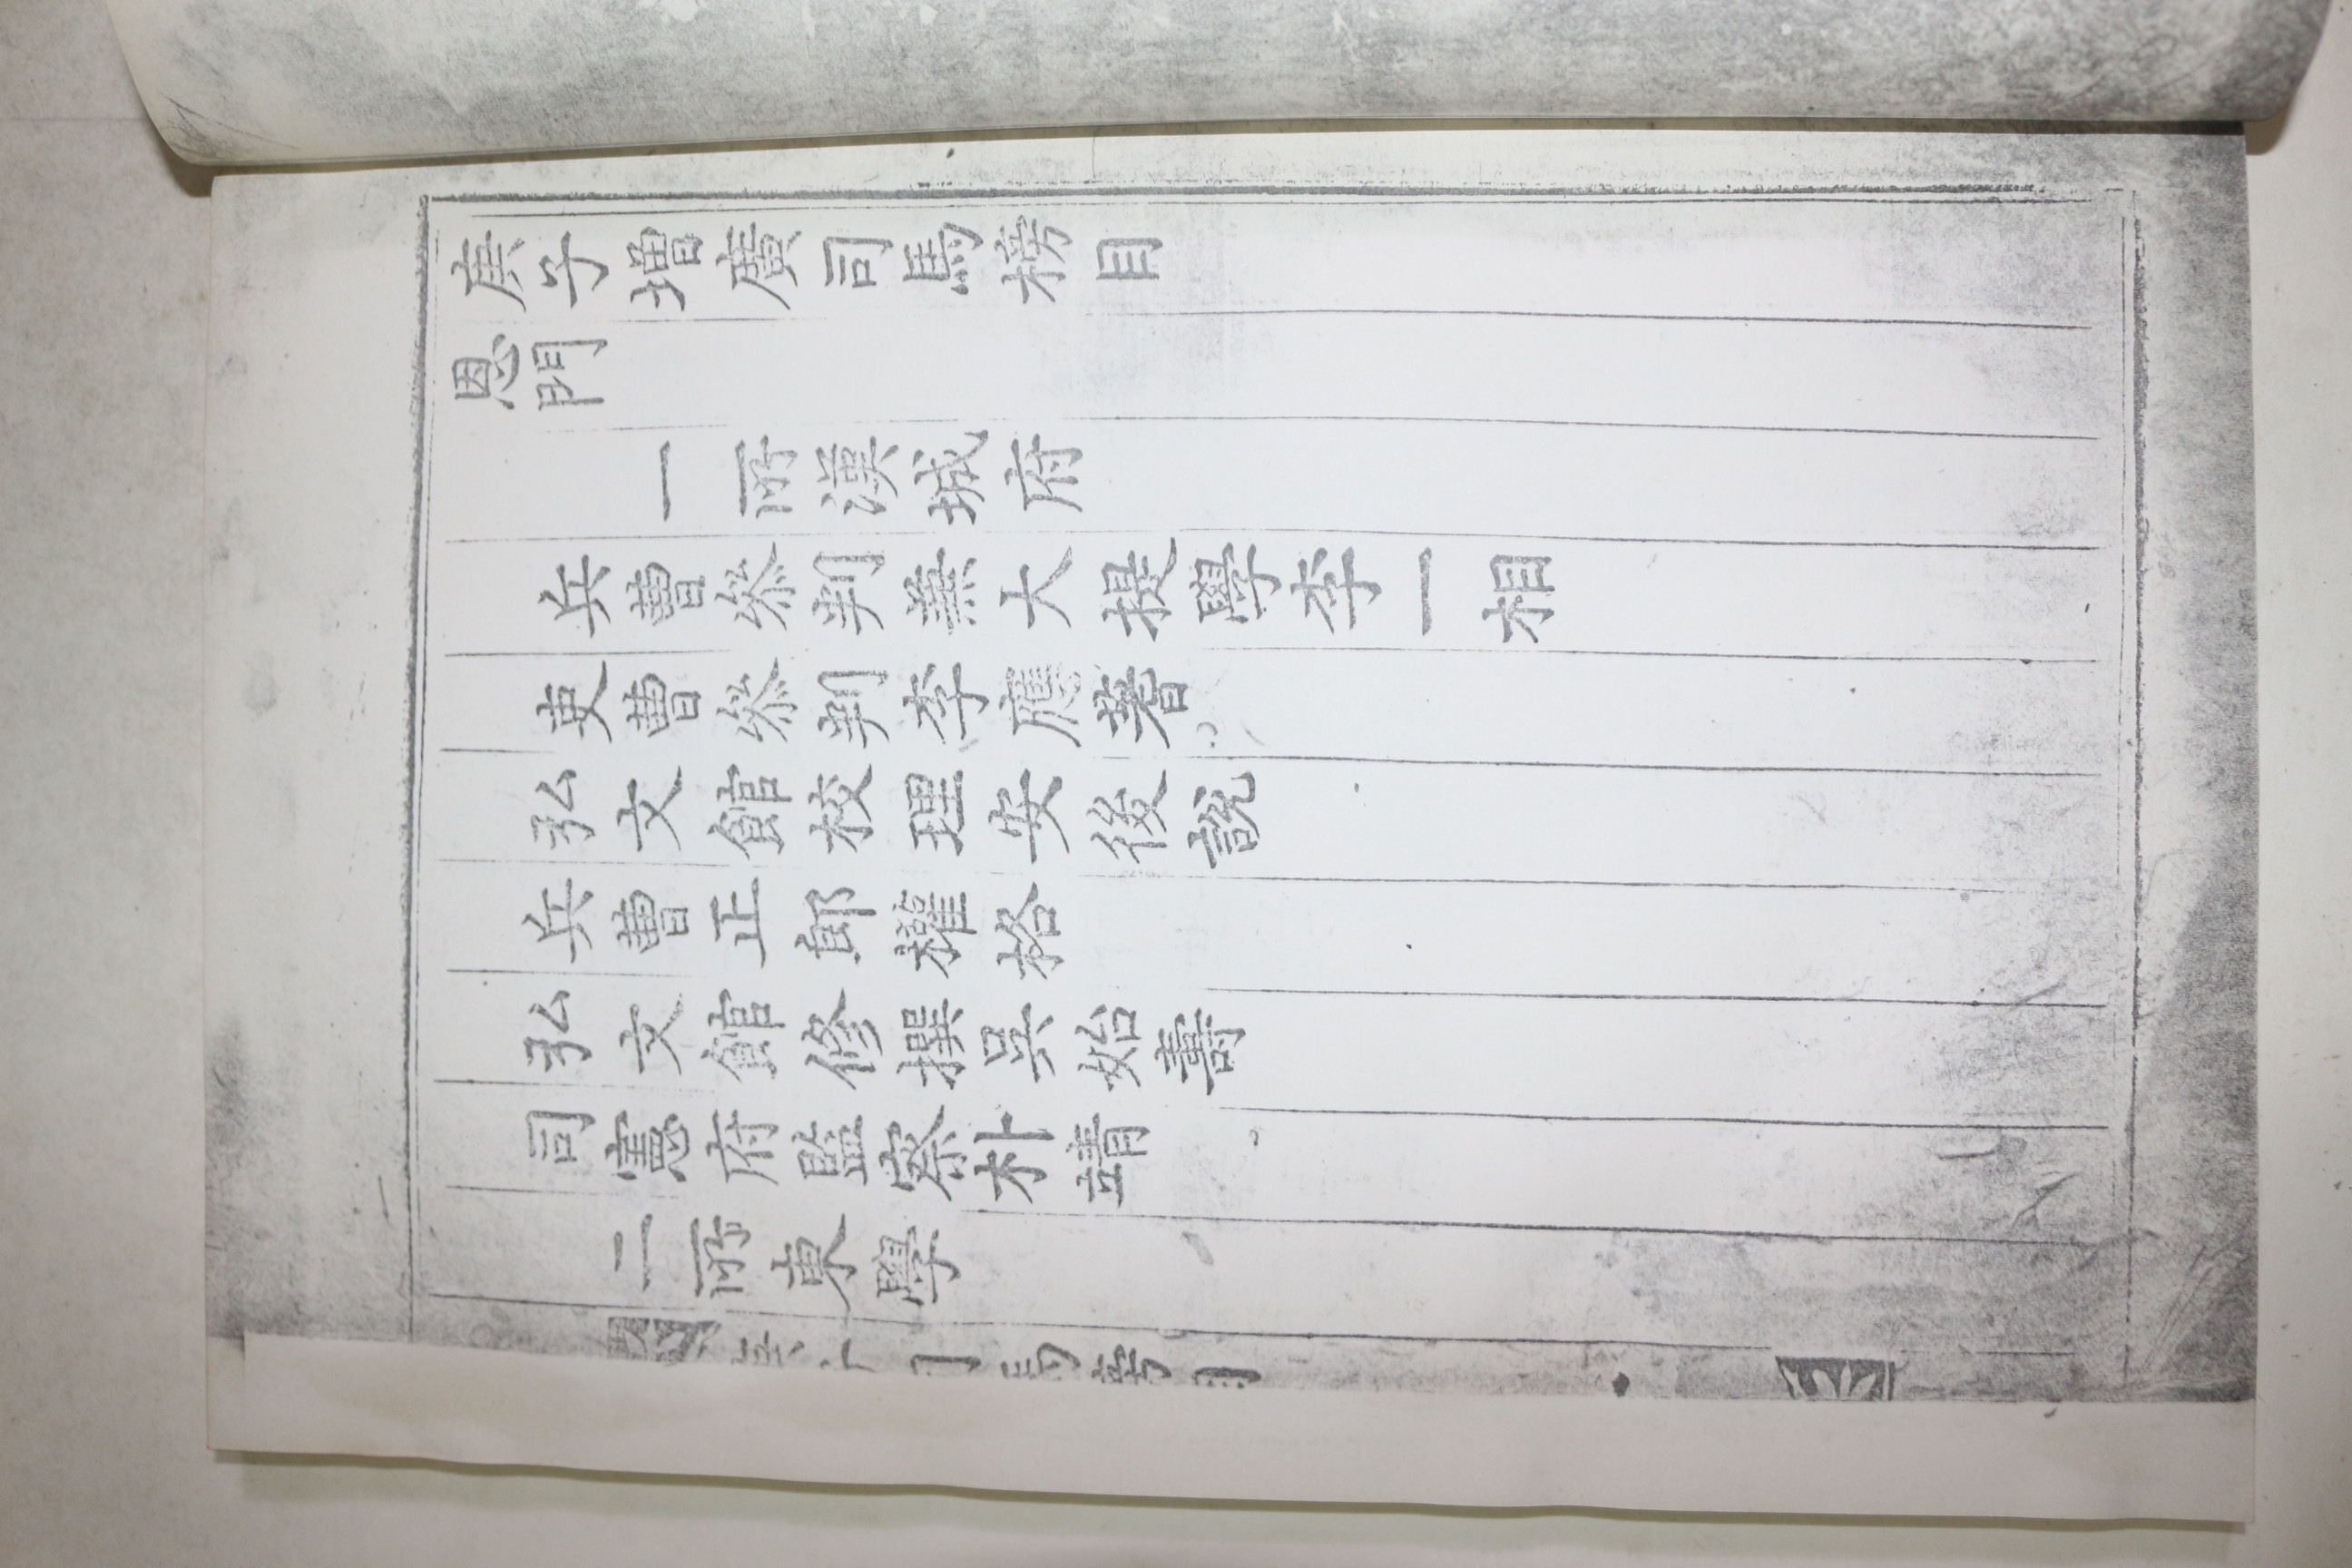 庚子增廣司馬榜目
恩門
一所漢城府
兵曹參判兼大提學李一相
吏曹參判李應蓍
弘文館校理安後說
兵曹正郎權格
弘文館修撰吳始壽
司憲府監察朴靖
二所東學